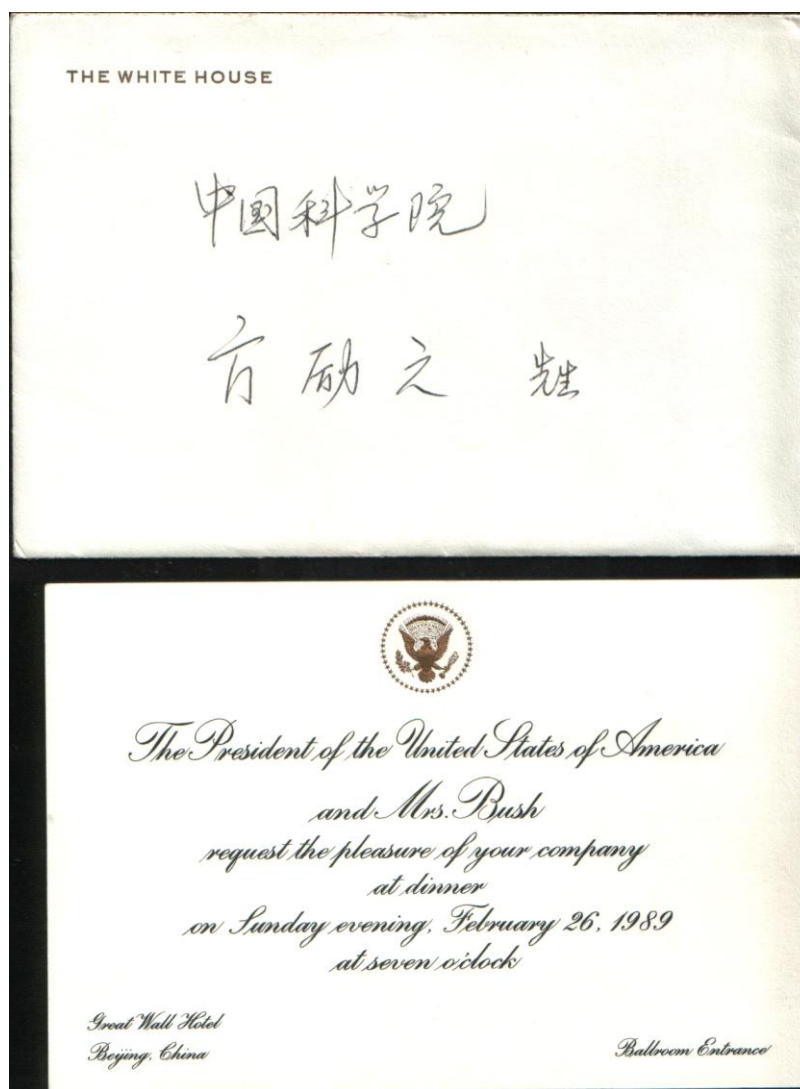 THE WHITE HOUSE
中国科学院
方励之 先生
The President of the United States of America
and Mrs. Bush
request the pleasure of your company
at dinner
on Sunday evening, February 26, 1989
at seven o'clock
Great Wall Hotel
Beijing, China
Ballroom Entrance